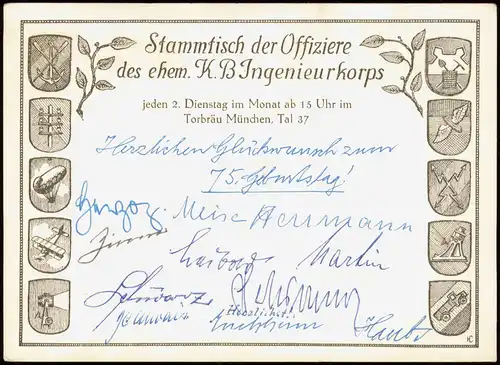 Stammtisch der Offiziere
des ehem. K.B Ingenieurkorps
jeden 2. Dienstag im Monat ab 15 Uhr im
Torbräu München, Tal 37
Herzlichen Glückwunsch zum
75. Geburtstag!
Herzog. Meise Herrmann
Martin
Schwarz
Herzlichst:
HC